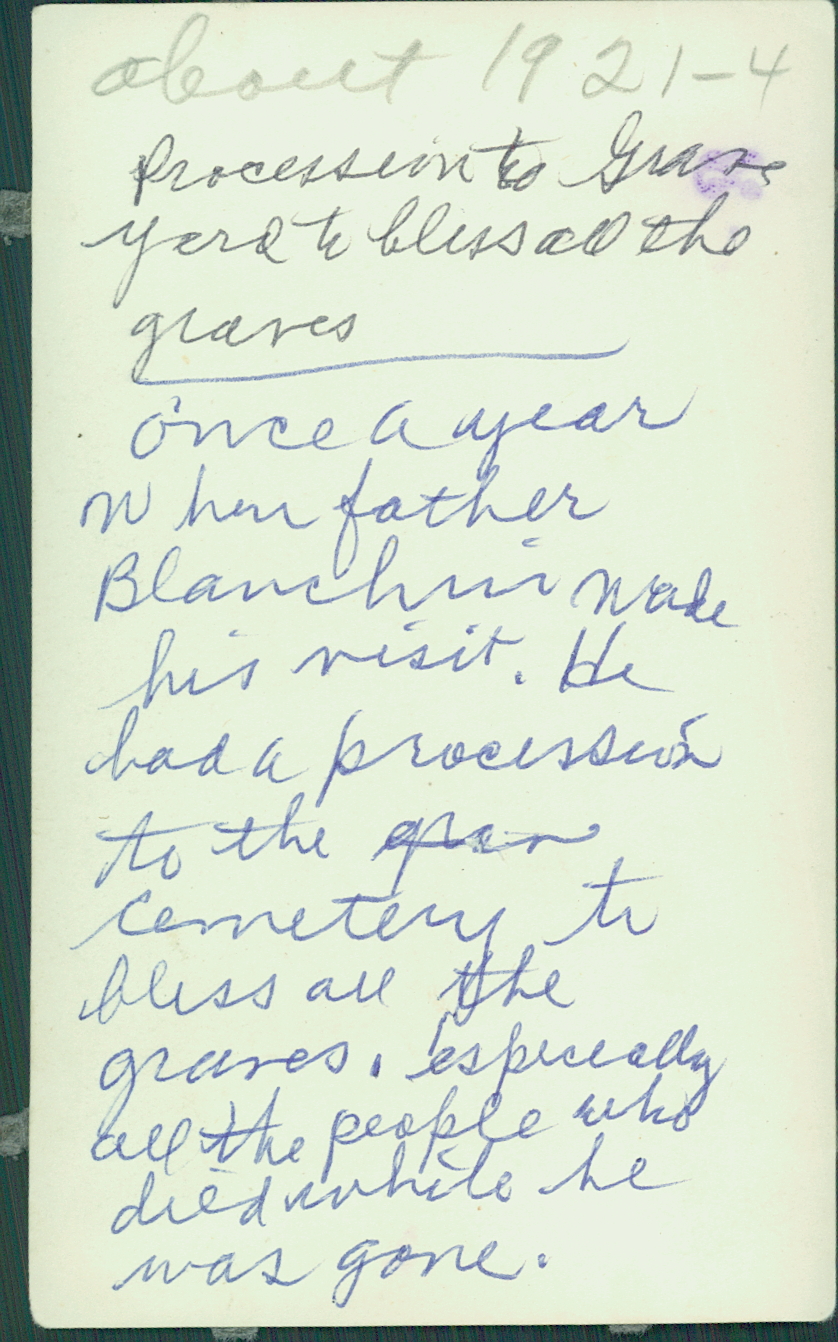 about 1921-4
Procession to Grave
yard to bless all the
graves
Once a year
when father
Blanchin made
his visit. He
had a procession
to the grav
cemetery to
bless all the
graves. especially
all the people who
died while he
was gone.